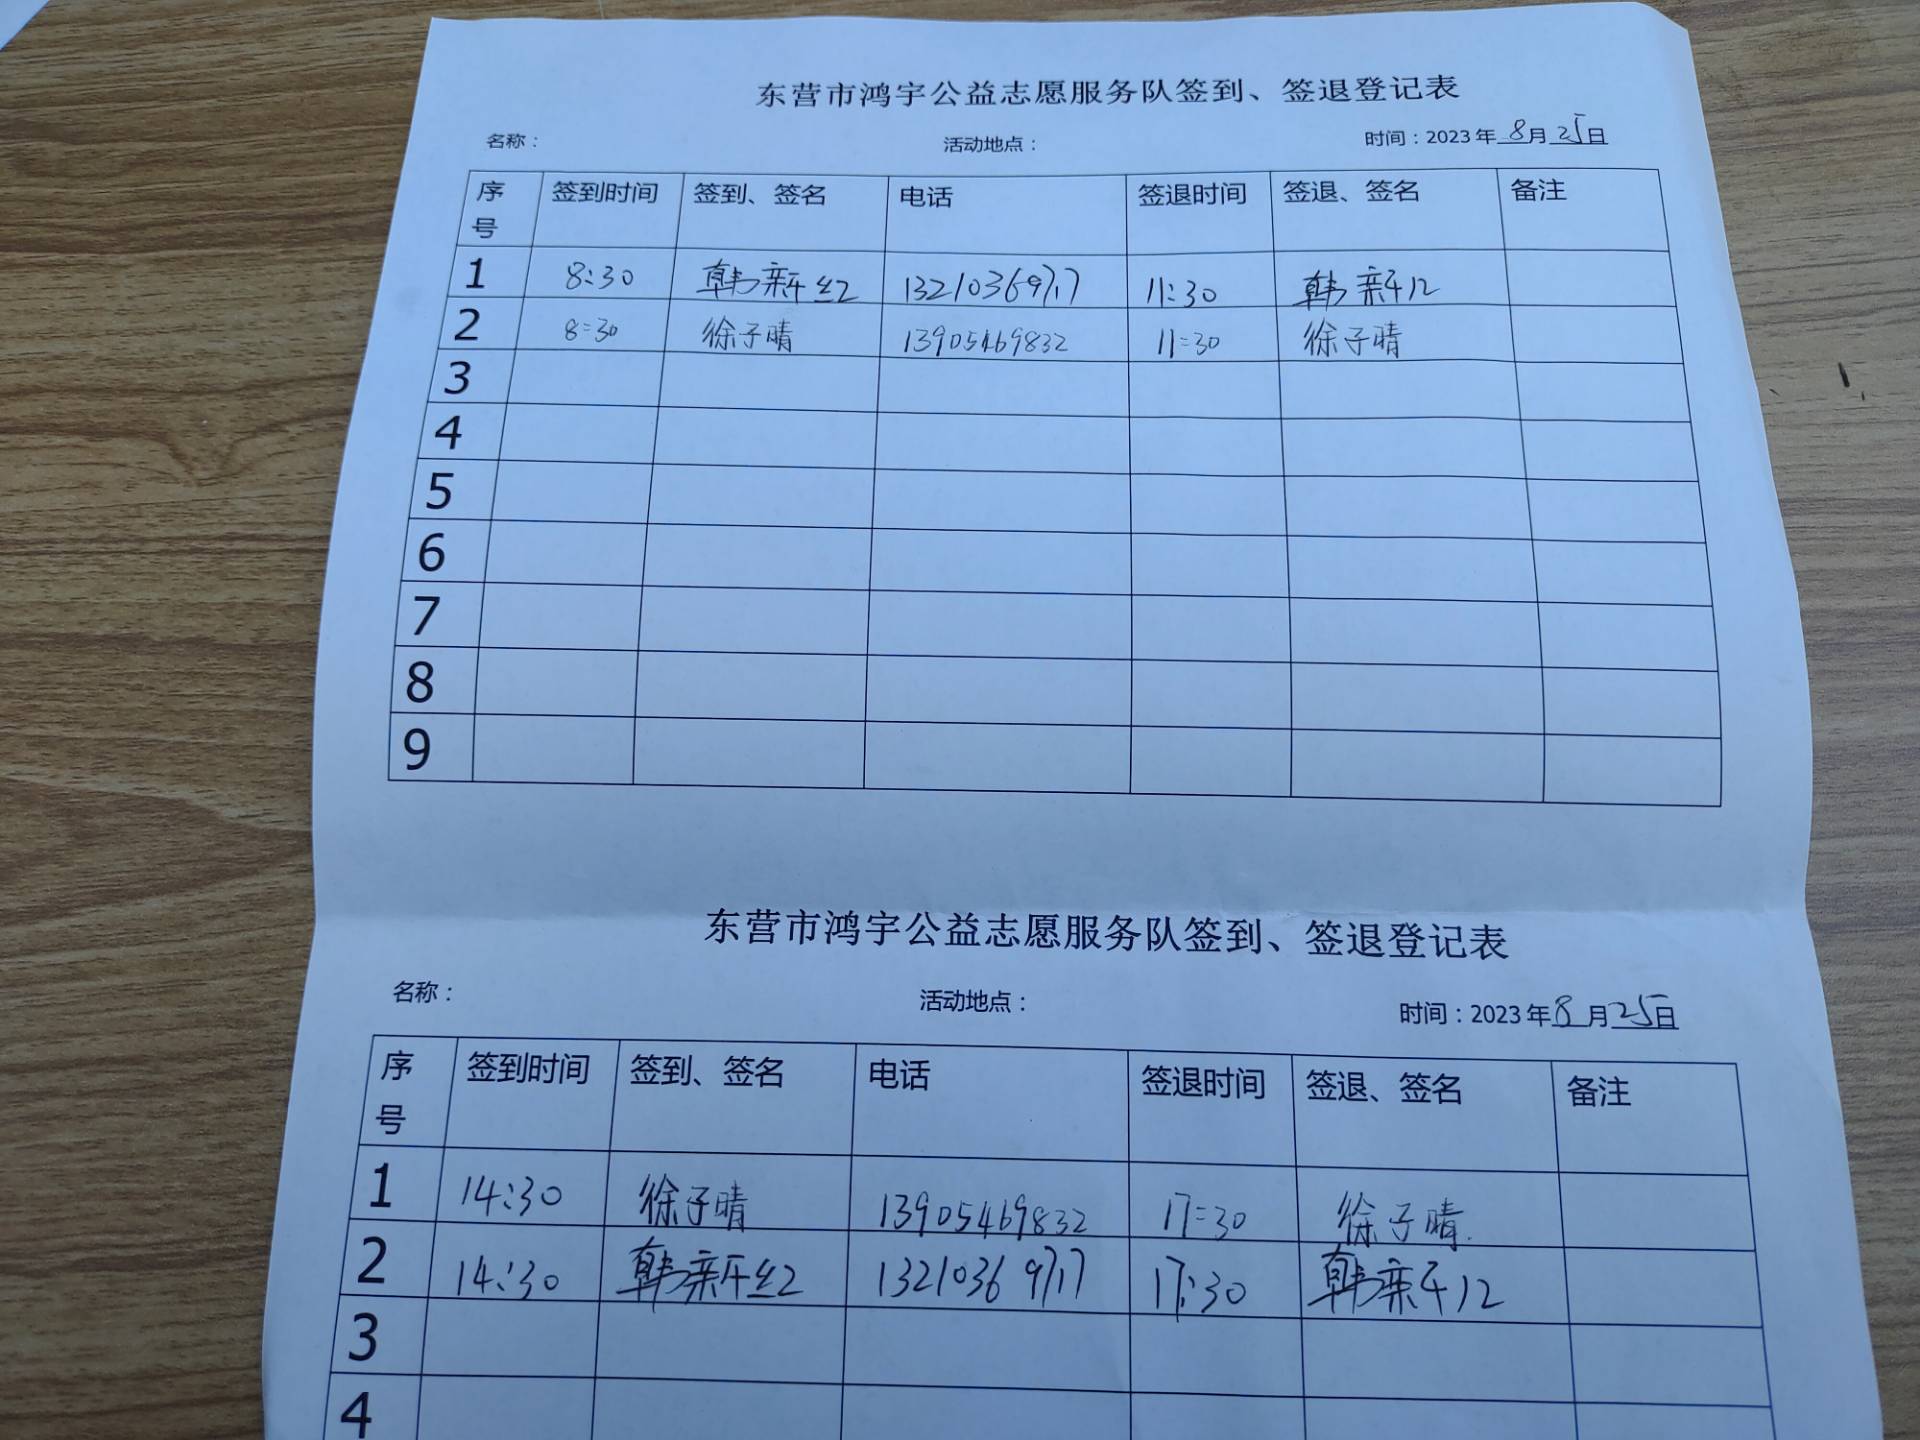 东营市鸿宇公益志愿服务队签到、签退登记表
名称： 活动地点： 时间：2023年8月25日
序号 签到时间 签到、签名 电话 签退时间 签退、签名 备注
1 8:30 韩新 11:30 韩新
2 8:30 徐子晴 13905469832 11:30 徐子晴
3
4
5
6
7
8
9
东营市鸿宇公益志愿服务队签到、签退登记表
名称： 活动地点： 时间：2023年8月25日
序号 签到时间 签到、签名 电话 签退时间 签退、签名 备注
1 14:30 徐子晴 13905469832 17:30 徐子晴
2 14:30 韩新 17:30 韩新
3
4